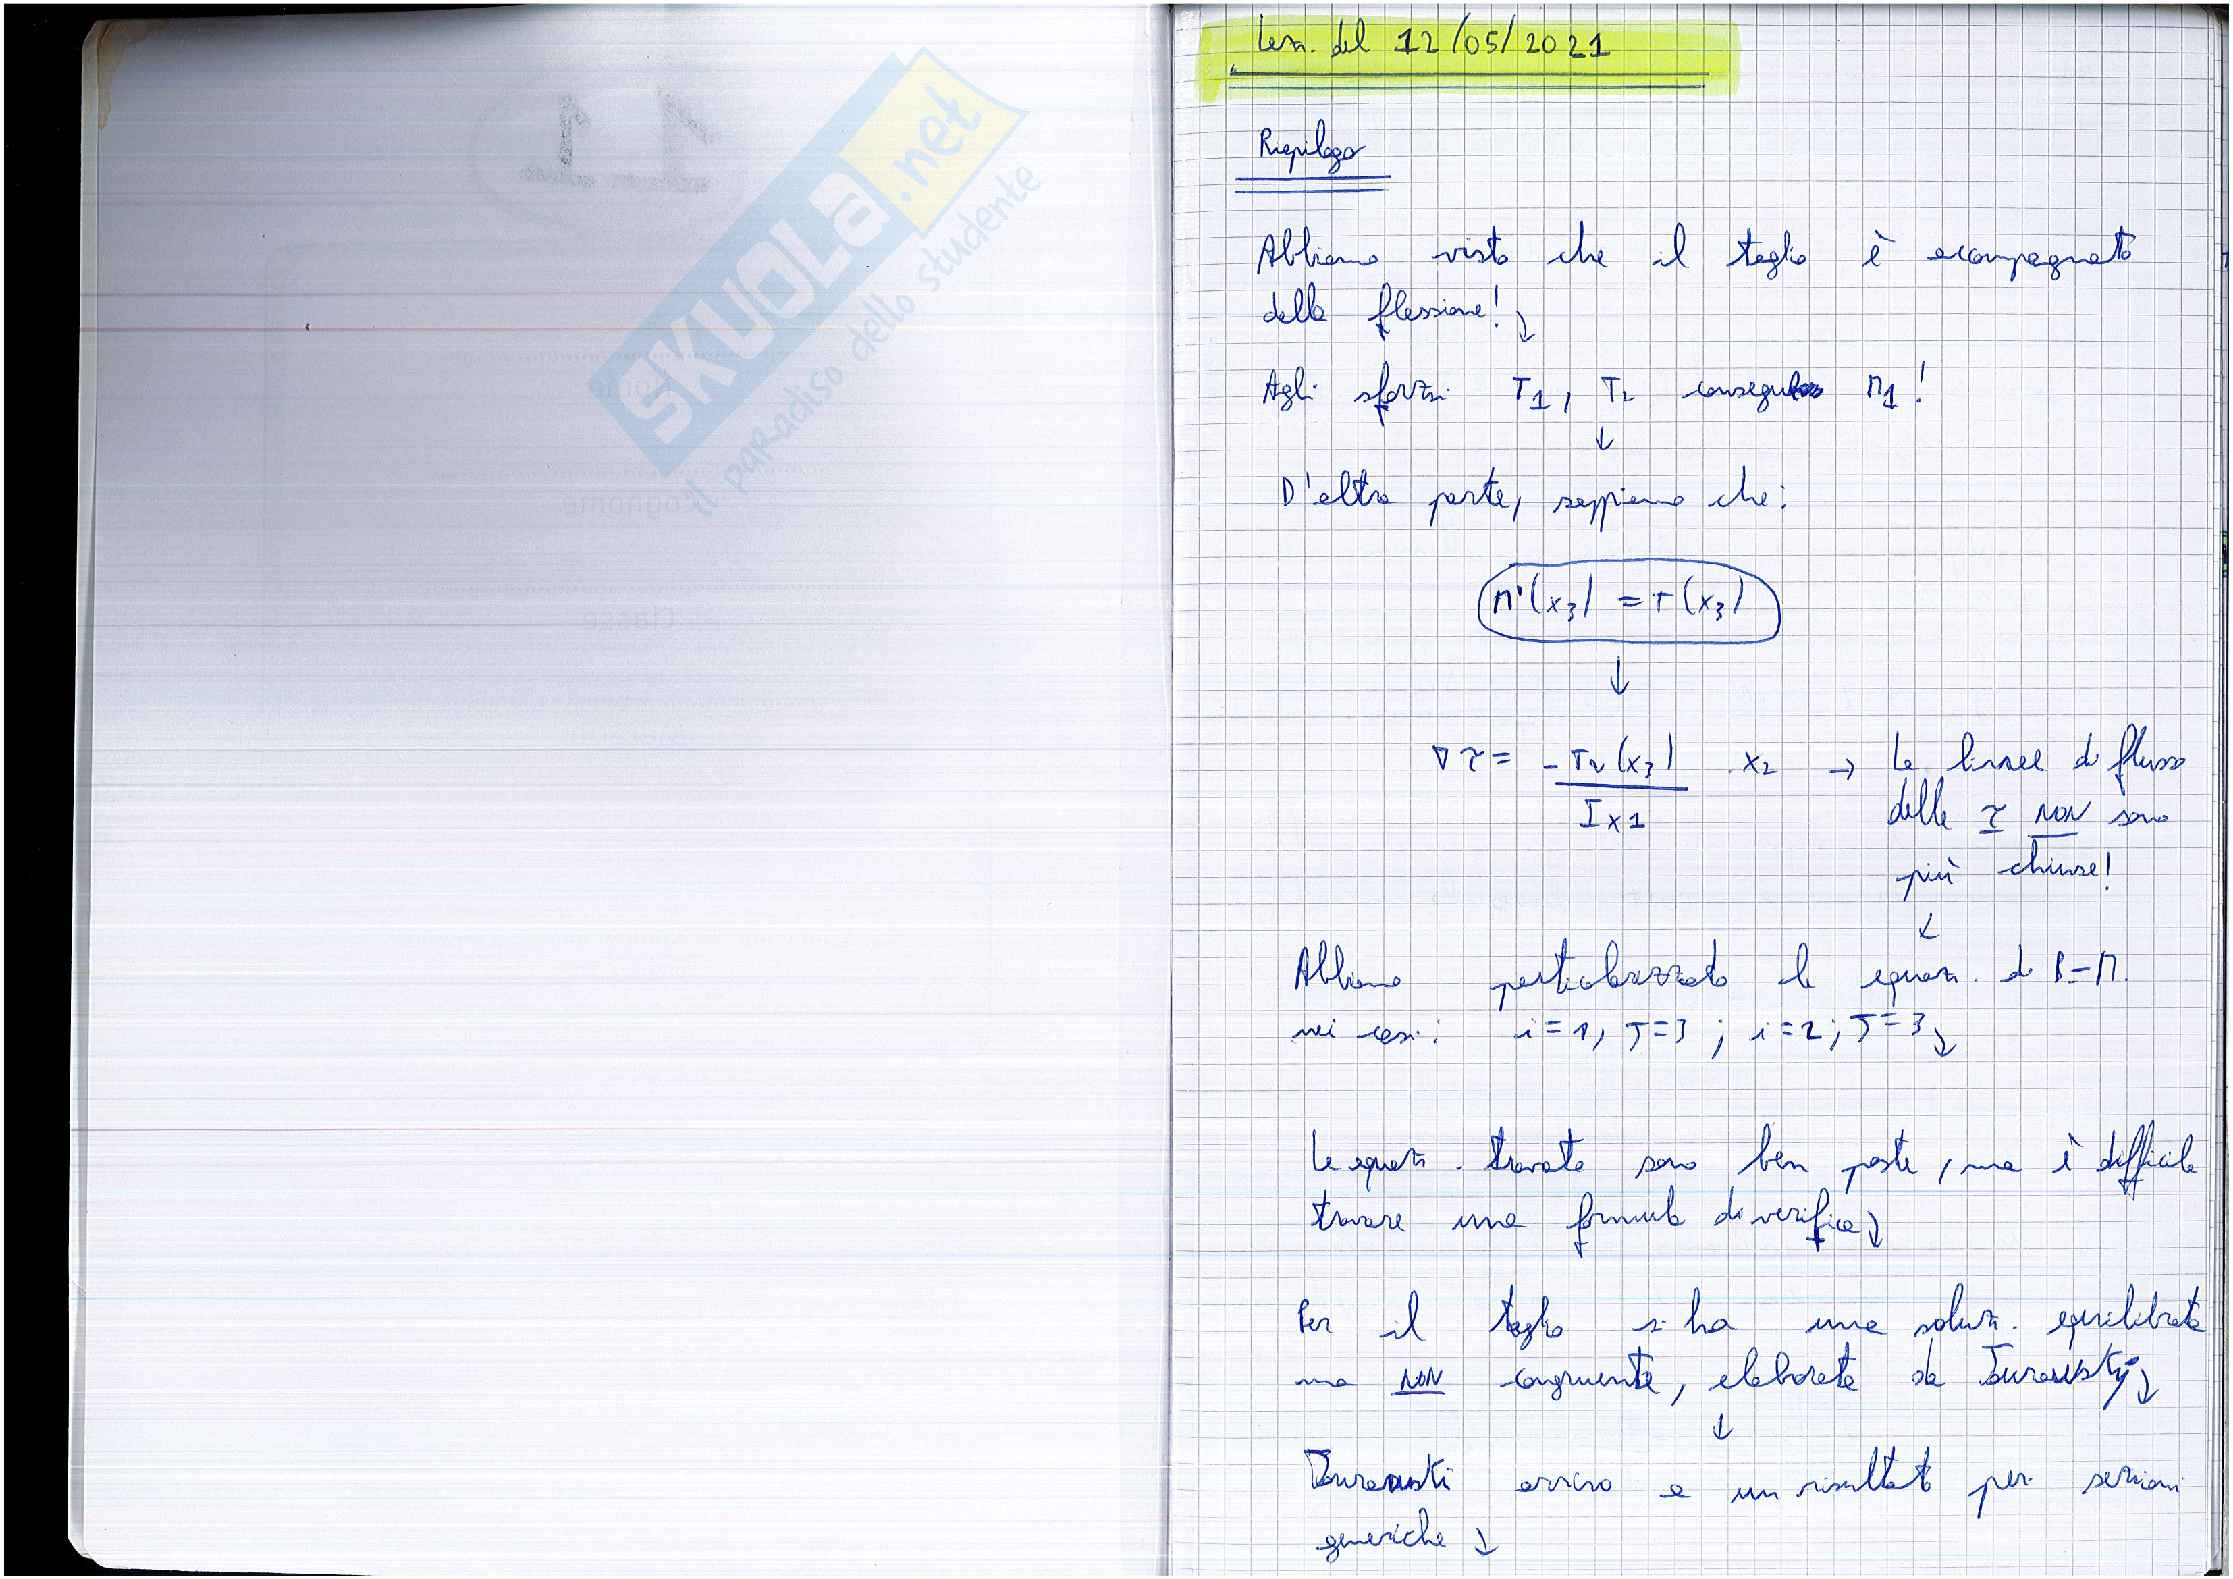 SKUOLA.net
il paradiso dello studente
Lez. del 12/05/2021
Riepilogo
Abbiamo visto che il taglio è accompagnato
dalla flessione! ↓
Agli sforzi T1, T2 M1!
↓
D'altra parte, sappiamo che:
M'(x3) = T(x3)
↓
∇τ = -T2(x3)/Ix1 · x2 → Le linee di flusso
delle τ NON sono
più chiuse!
↓
Abbiamo particolarizzato le equaz. di B-M.
nei casi: i=1, J=3; i=2; J=3 ↓
Le equaz. trovate sono ben poste, ma è difficile
trovare una formula di verifica ↓
Per il taglio si ha una soluz. equilibrata
ma NON congruente, elaborata da Jourawsky ↓
↓
Jourawski arrivò a un risultato per sezioni
generiche ↓